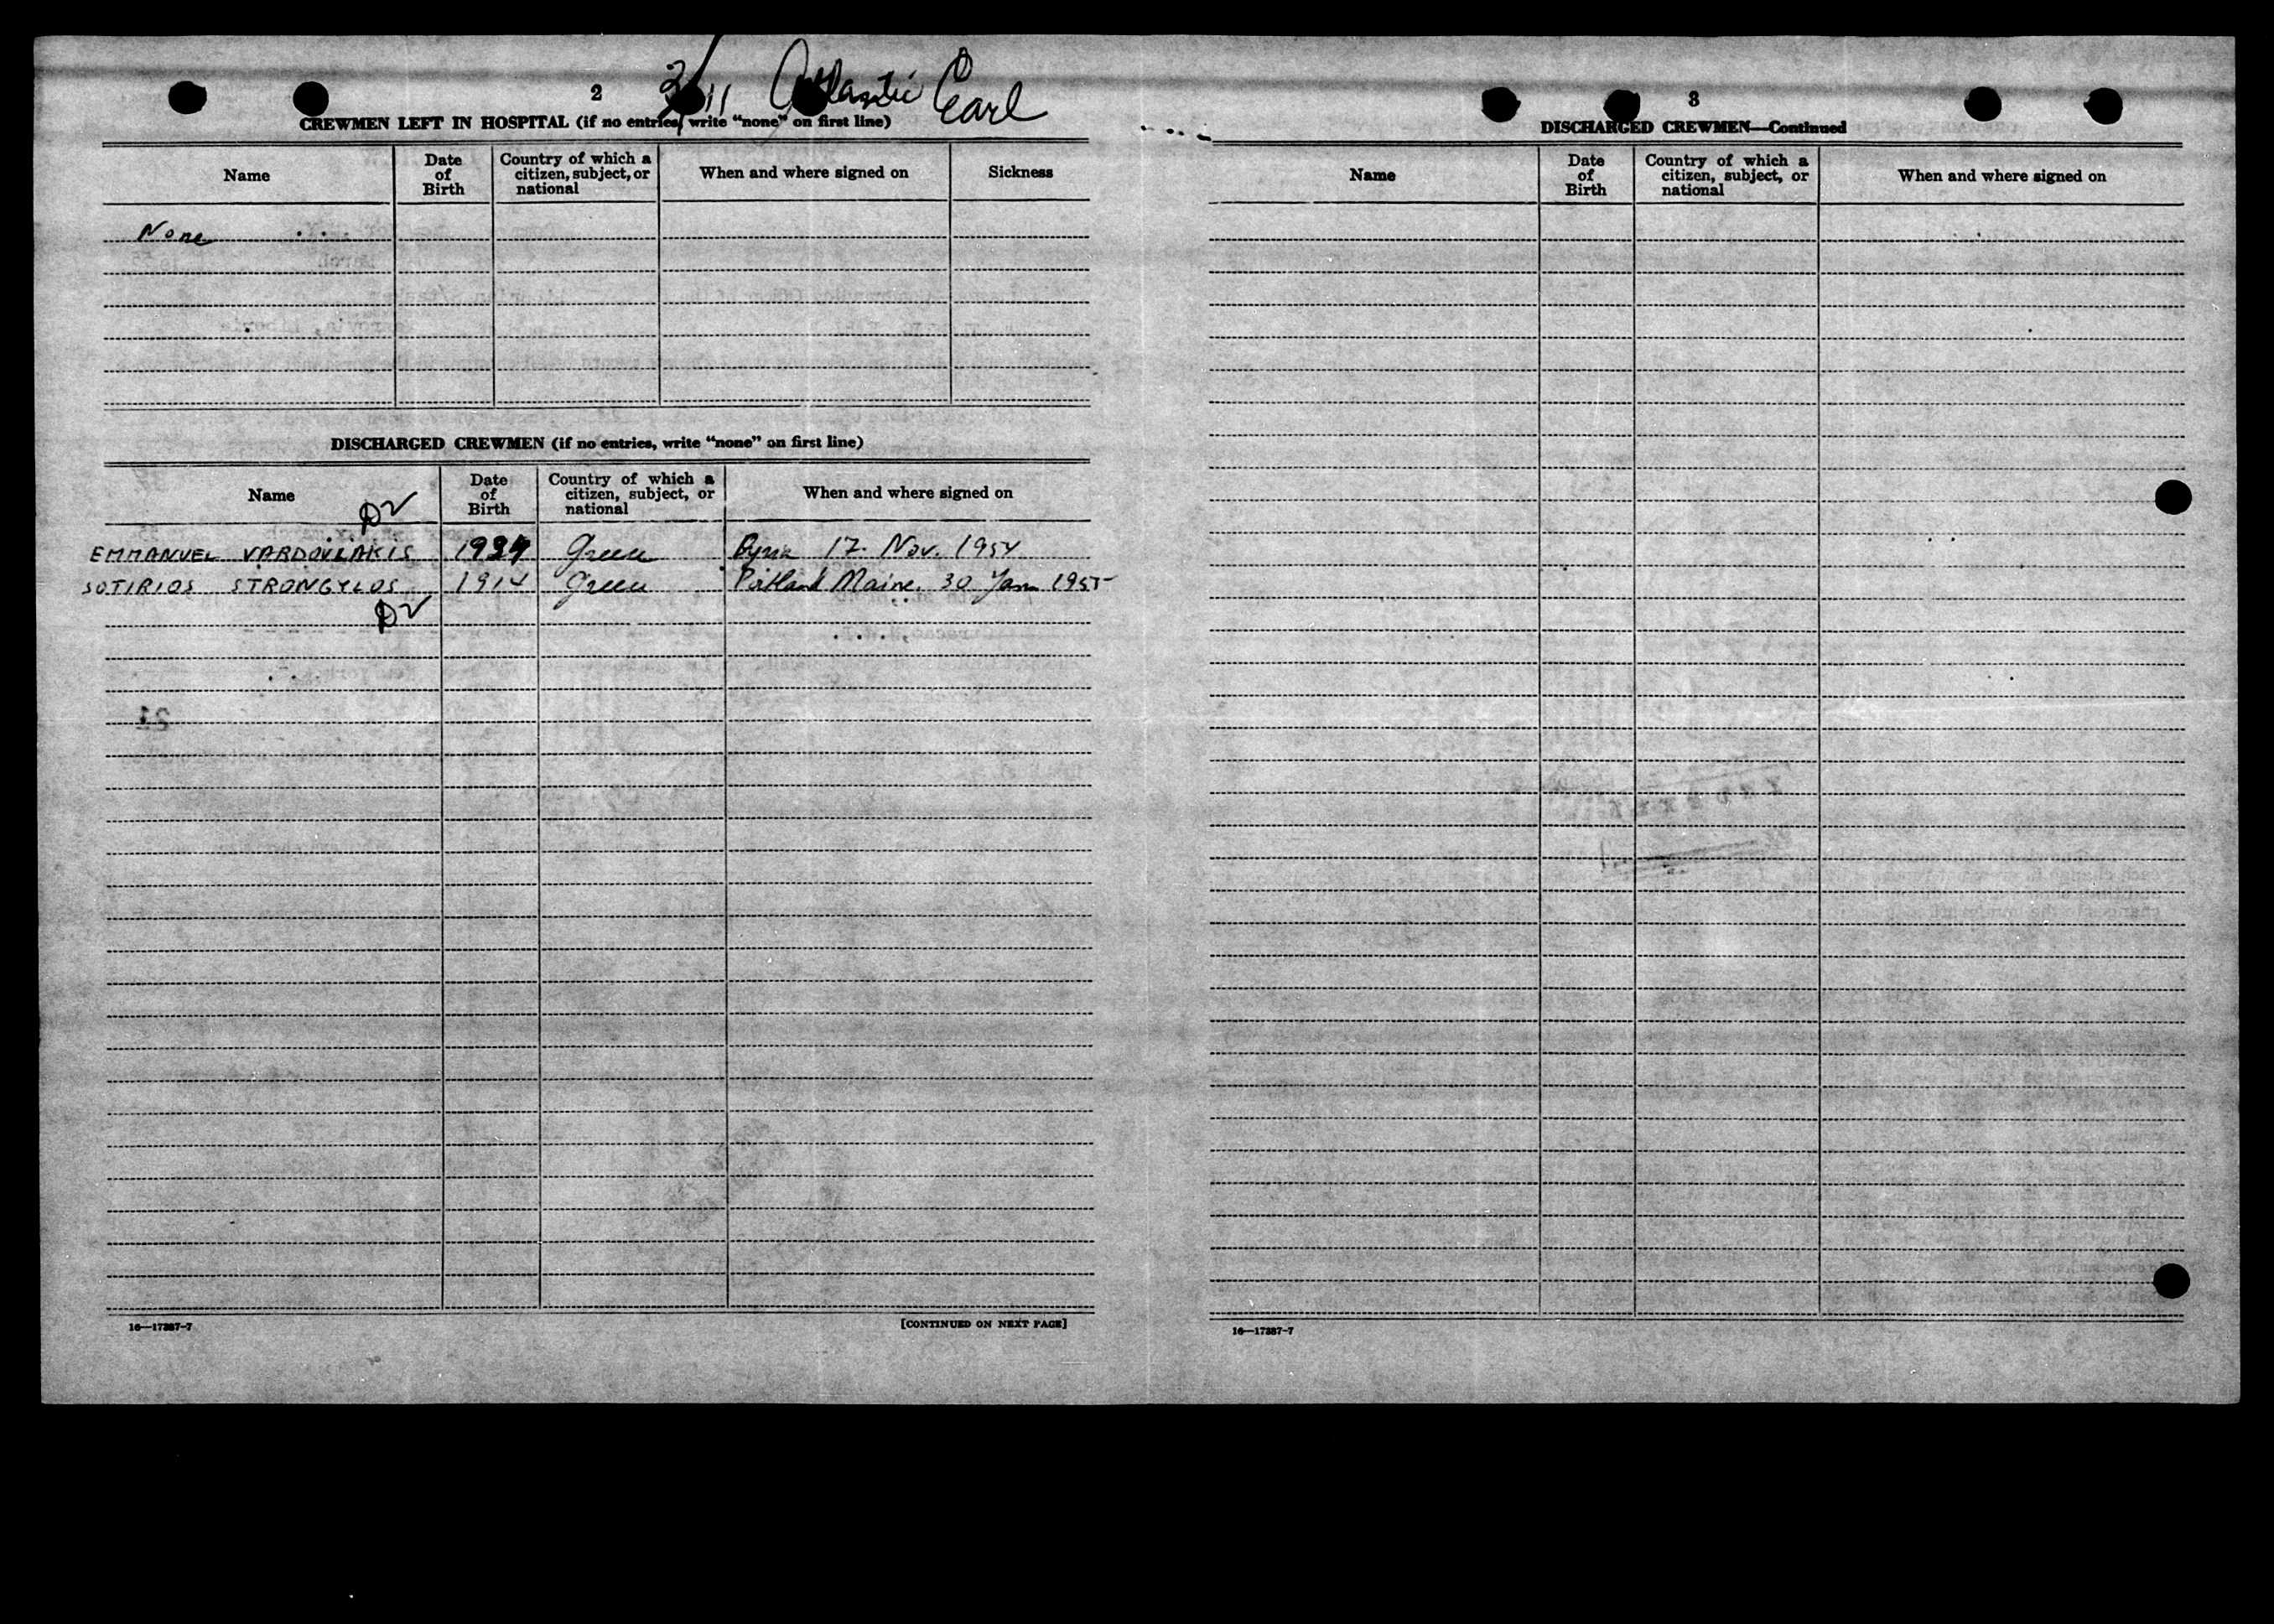 2
3/11 Atlantic Earl
CREWMEN LEFT IN HOSPITAL (if no entries, write "none" on first line)
Name
Date of Birth
Country of which a citizen, subject, or national
When and where signed on
Sickness
None
DISCHARGED CREWMEN (if no entries, write "none" on first line)
Name
Date of Birth
Country of which a citizen, subject, or national
When and where signed on
EMMANUEL VARDOULAKIS 1934 Greece 17. Nov. 1954
SOTIRIOS STRONGYLOS 1914 Greece Portland Maine. 30 Jan 1955
16—17387-7
[CONTINUED ON NEXT PAGE]
3
DISCHARGED CREWMEN—Continued
Name
Date of Birth
Country of which a citizen, subject, or national
When and where signed on
16—17387-7